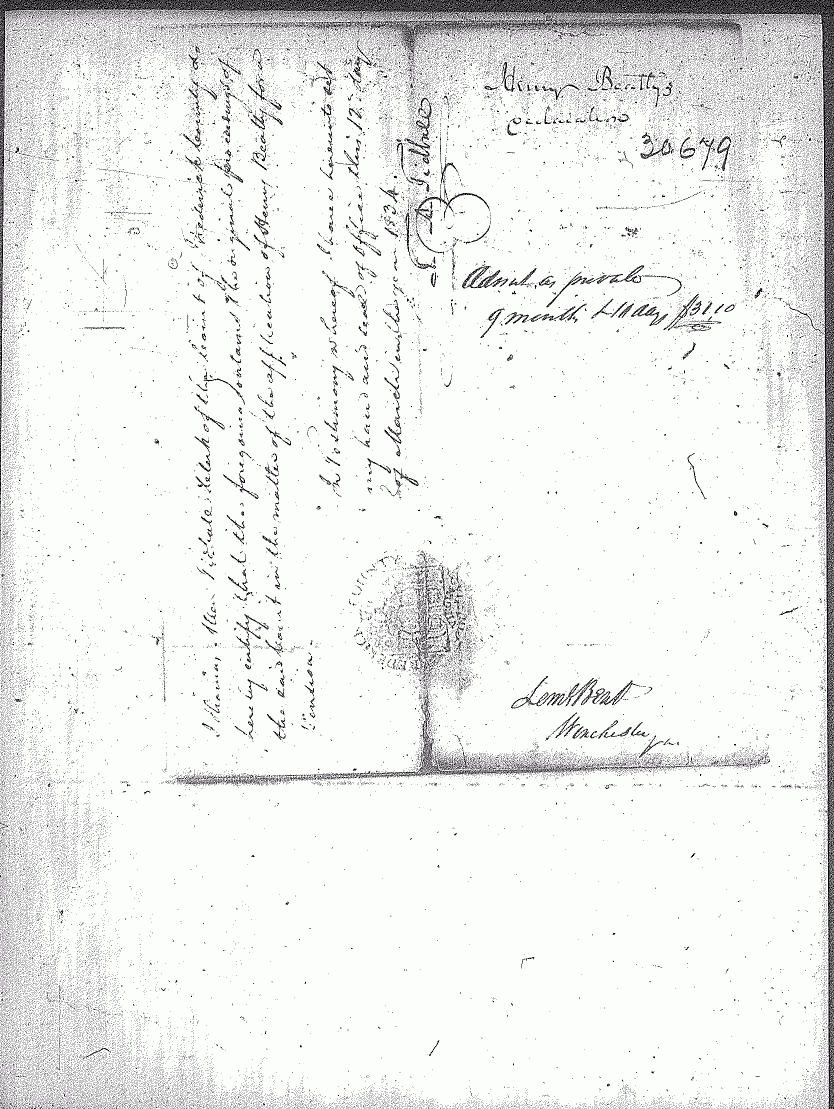 I Thomas Allen Tidball Clerk of the Court of Frederick County do
hereby certify that the foregoing contains the original proceedings of
the said Court in the matter of the application of Henry Beatty for a
Pension.
In Testimony whereof I have hereunto set
my hand and seal of Office this 12th day
of March in the year 1834.
T. A. Tidball
FREDERICK COUNTY
Henry Beatty's
declaration
30679
Admit as private
9 months & 10 days $31.10
Leml Bent
Winchester
Va.